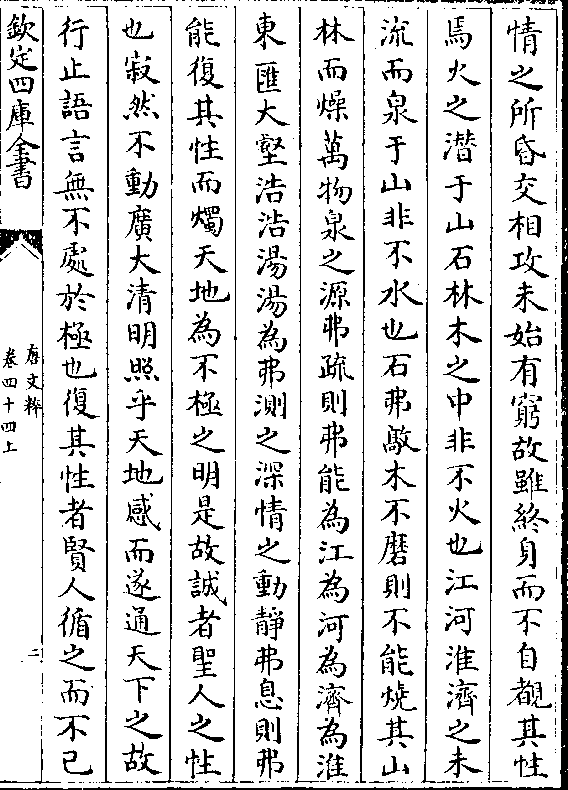 情之所昏交相攻未始有窮故雖終身而不自覩其性
焉火之潛于山石林木之中非不火也江河淮濟之未
流而泉于山非不水也石弗敲木不磨則不能燒其山
林而燥萬物泉之源弗疏則弗能為江為河為濟為淮
東匯大壑浩浩湯湯為弗測之深情之動靜弗息則弗
能復其性而燭天地為不極之明是故誠者聖人之性
也寂然不動廣大清明照乎天地感而遂通天下之故
行止語言無不處於極也復其性者賢人循之而不已
欽定四庫全書
唐文粹
卷四十四上
二